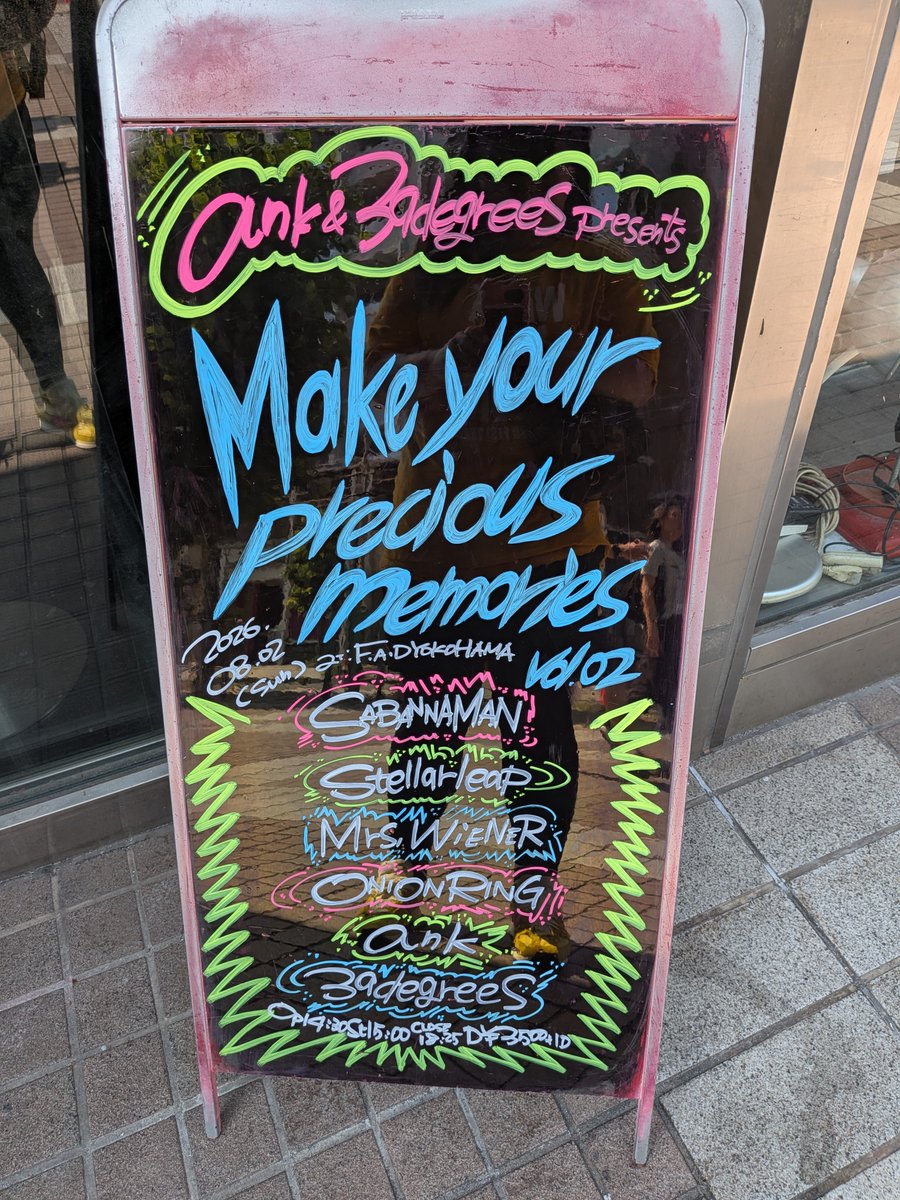 ank & 39degrees presents
Make your
precious
memories
vol.02
2026.
08.02
(Sun) at: F.A.D YOKOHAMA
SABANNAMAN
Stellarleap
Mrs. WiENER
ONIONRING
ank
39degrees
OP14:30 St15:00 CLOSE 18:25 D¥3500+1D